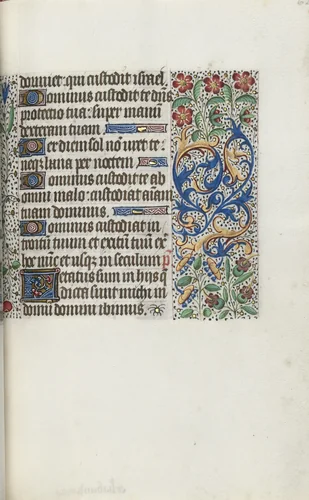 dormiet: qui custodit israel.
Dominus custodit te dñs
protectio tua: super manū
dexteram tuam.
Per diem sol nō uret te:
neqz luna per noctem.
Dominus custodit te ab
omni malo: custodiat aīam
tuam dominus.
Dominus custodiat in
troitū tuum et exitū tuū ex
hoc nūc et usqz in seculum
Letatus sum in hijs q
dicta sunt michi in
domū domini ibimus.